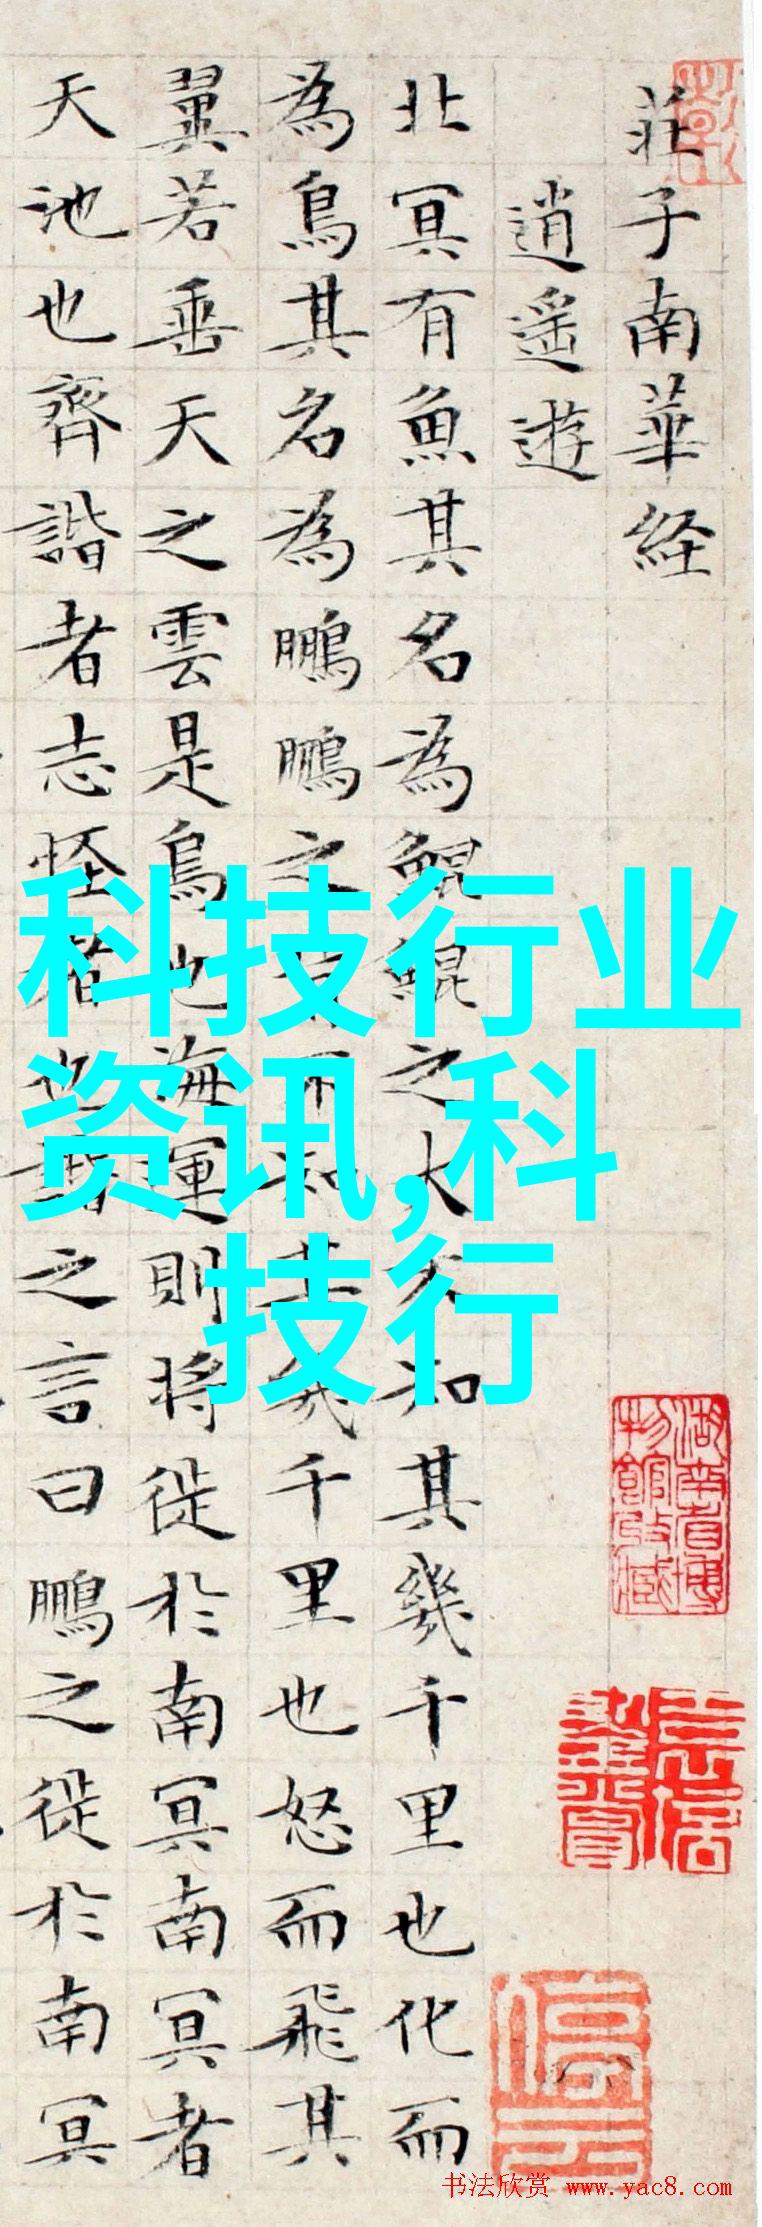 莊子南華经
逍遥遊
北冥有魚其名為鯤鯤之大不知其幾千里也化而
為鳥其名為鵬鵬之背不知其幾千里也怒而飛其
翼若垂天之雲是鳥也海運則将徙於南冥南冥者
天池也齊諧者志怪者也諧之言曰鵬之徙於南冥
科技行业
资讯,科
技行
湖南省博
物館收藏
停云
书法欣赏 www.yac8.com